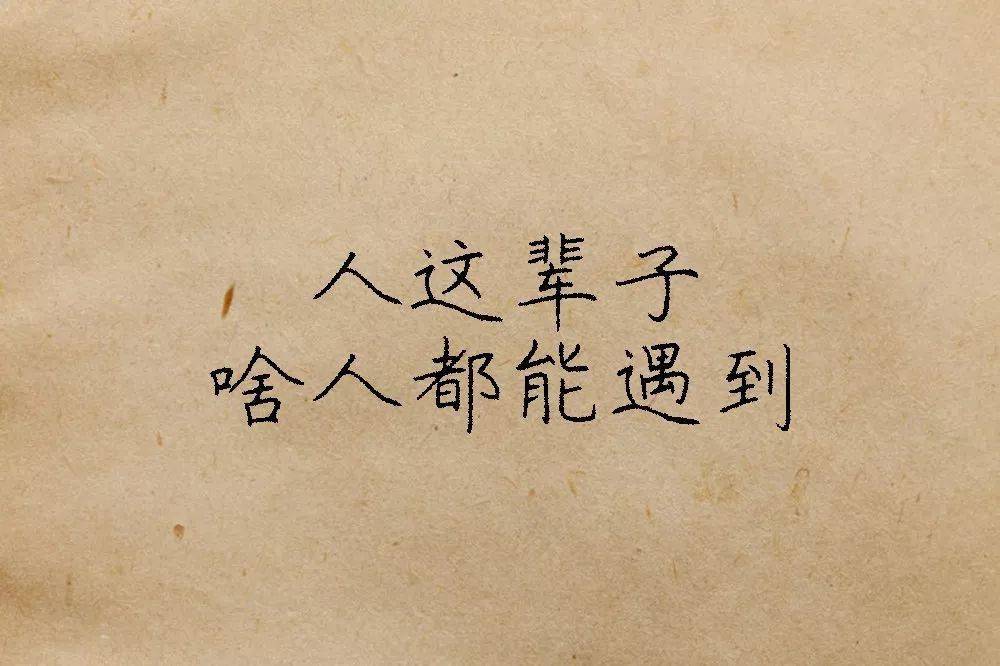 人这辈子
啥人都能遇到